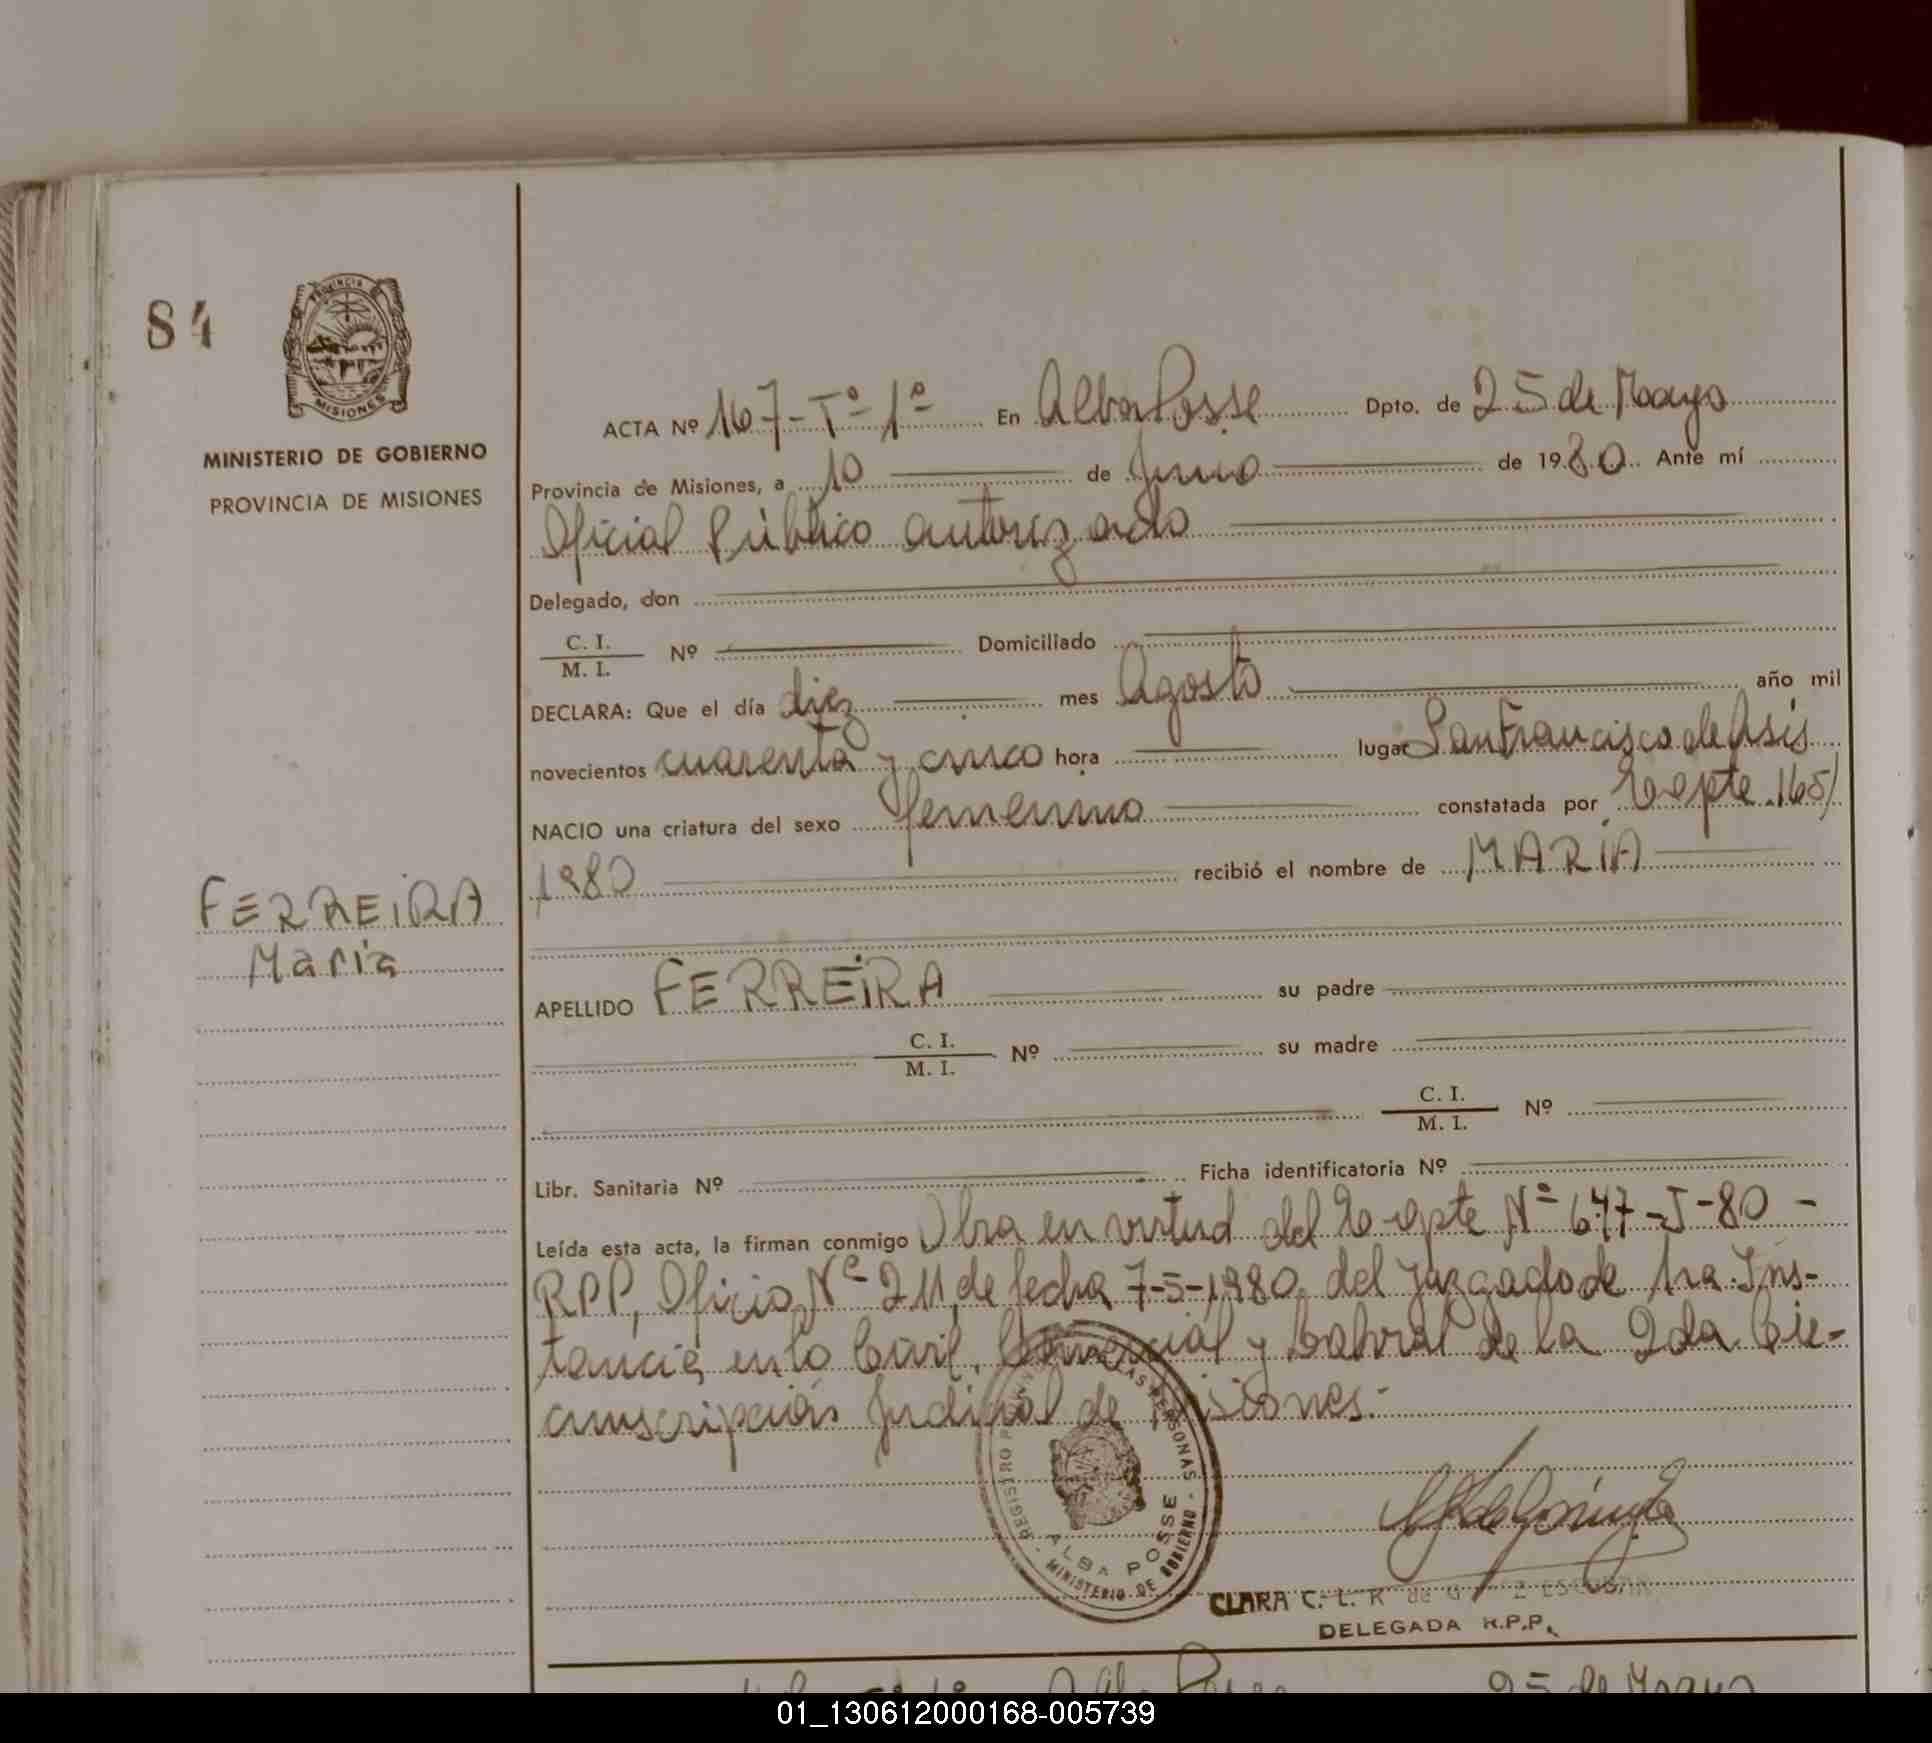 84
PROVINCIA DE
MISIONES
MINISTERIO DE GOBIERNO
PROVINCIA DE MISIONES
FERREIRA
Maria
ACTA Nº 167-Tº-1º En Alba Posse Dpto. de 25 de Mayo
Provincia de Misiones, a 10 de Junio de 1980. Ante mí
Oficial Público autorizado
Delegado, don
C. I.
M. I. Nº Domiciliado
DECLARA: Que el día diez mes Agosto año mil
novecientos cuarenta y cinco hora lugar San Francisco de Asís
NACIO una criatura del sexo femenino constatada por Expte. 165/
1980 recibió el nombre de MARÍA
APELLIDO FERREIRA su padre
C. I.
M. I. Nº su madre
C. I.
M. I. Nº
Libr. Sanitaria Nº Ficha identificatoria Nº
Leída esta acta, la firman conmigo Obra en virtud del Expte Nº 647-J-80-
RPP, Oficio Nº 211, de fecha 7-5-1980 del Juzgado de 1ra. Ins-
tancia en lo Civil, Comercial y Laboral de la 2da. Cir-
cunscripción Judicial de Misiones.-
REGISTRO LAS PERSONAS
ALBA POSSE
MINISTERIO DE GOBIERNO
CLARA C. L. R de ESCOBAR
DELEGADA R.P.P.
Alba Posse 25 de Mayo
01_130612000168-005739